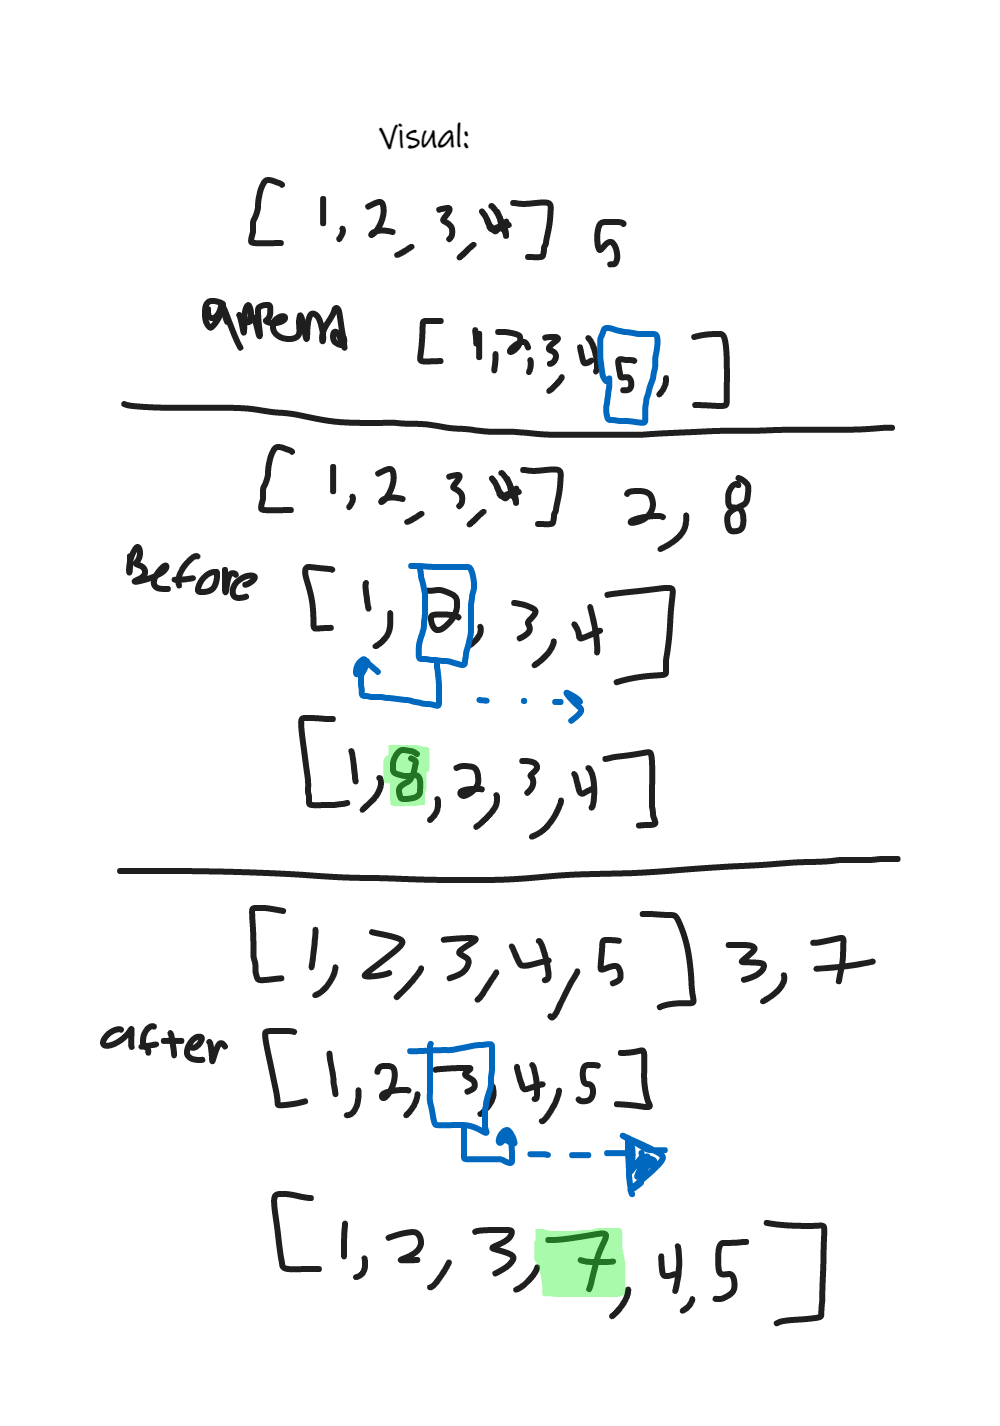 Visual:
[ 1, 2, 3, 4 ] 5
append [ 1, 2, 3, 4 5, ]
[ 1, 2, 3, 4 ] 2, 8
Before [ 1, 2, 3, 4 ]
[ 1, 8, 2, 3, 4 ]
[ 1, 2, 3, 4, 5 ] 3, 7
after [ 1, 2, 3, 4, 5 ]
[ 1, 2, 3, 7, 4, 5 ]